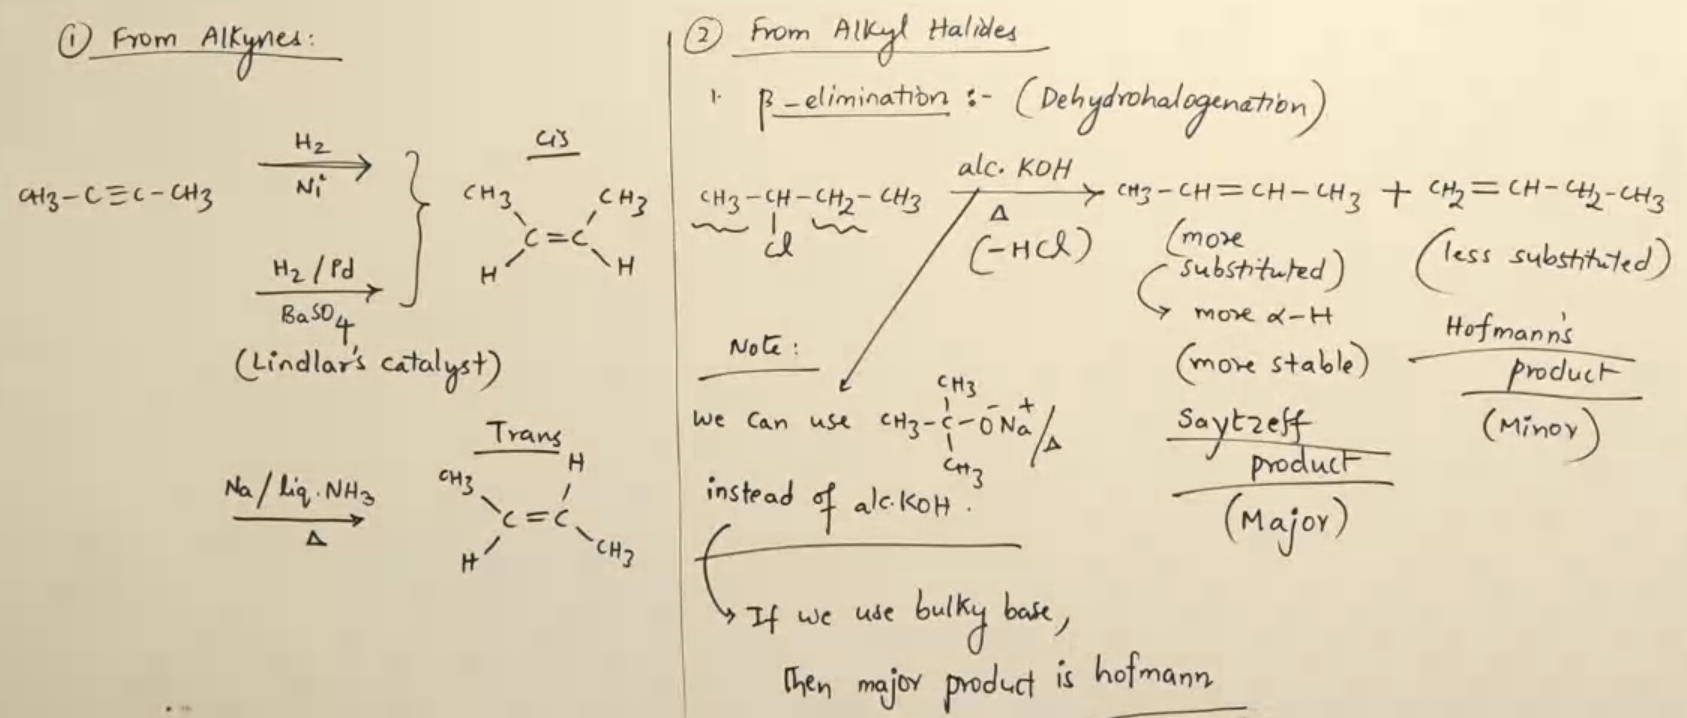 ① From Alkynes:
H2
Ni
CH3-C≡C-CH3
H2/Pd
BaSO4
(Lindlar's catalyst)
Cis
CH3 CH3
C=C
H H
Na/liq.NH3
Δ
Trans
CH3 H
C=C
H CH3
② From Alkyl Halides
1. β-elimination :- (Dehydrohalogenation)
CH3-CH-CH2-CH3
Cl
alc. KOH
Δ
(-HCl)
CH3-CH=CH-CH3 + CH2=CH-CH2-CH3
(more
substituted)
→ more α-H
(more stable)
Saytzeff
product
(Major)
(less substituted)
Hofmann's
product
(Minor)
Note:
CH3
we can use CH3-C-O⁻Na⁺/Δ
CH3
instead of alc.KOH.
→ If we use bulky base,
Then major product is hofmann